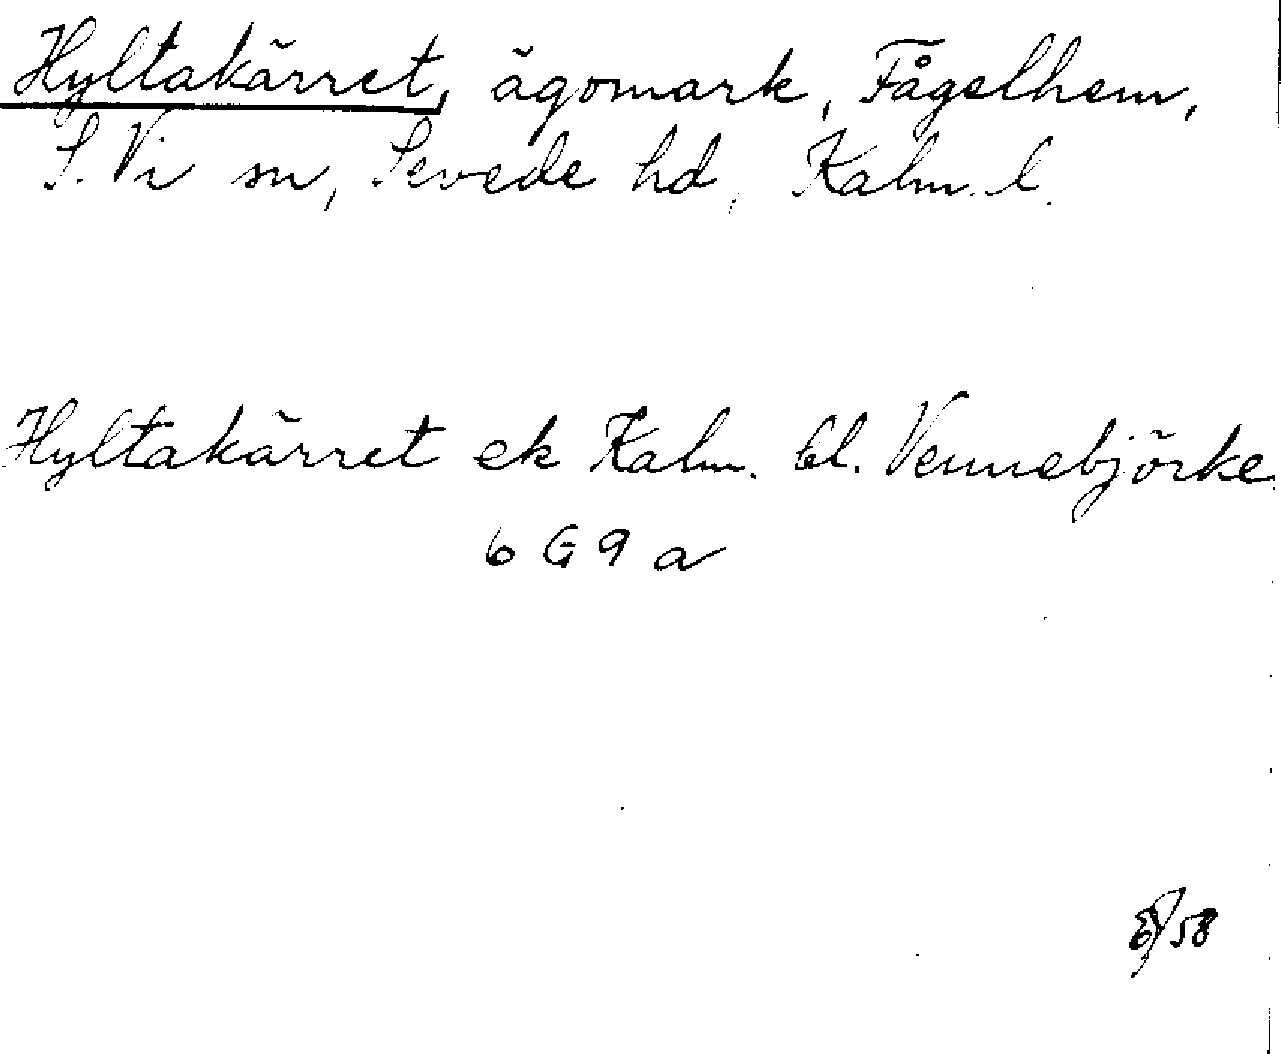 Hyltakärret, ägomark, Fågelhem,
S. Vi sn, Sevede hd, Kalm. l.
Hyltakärret ek Kalm. bl. Vennebjörke
6 G 9 a
/58